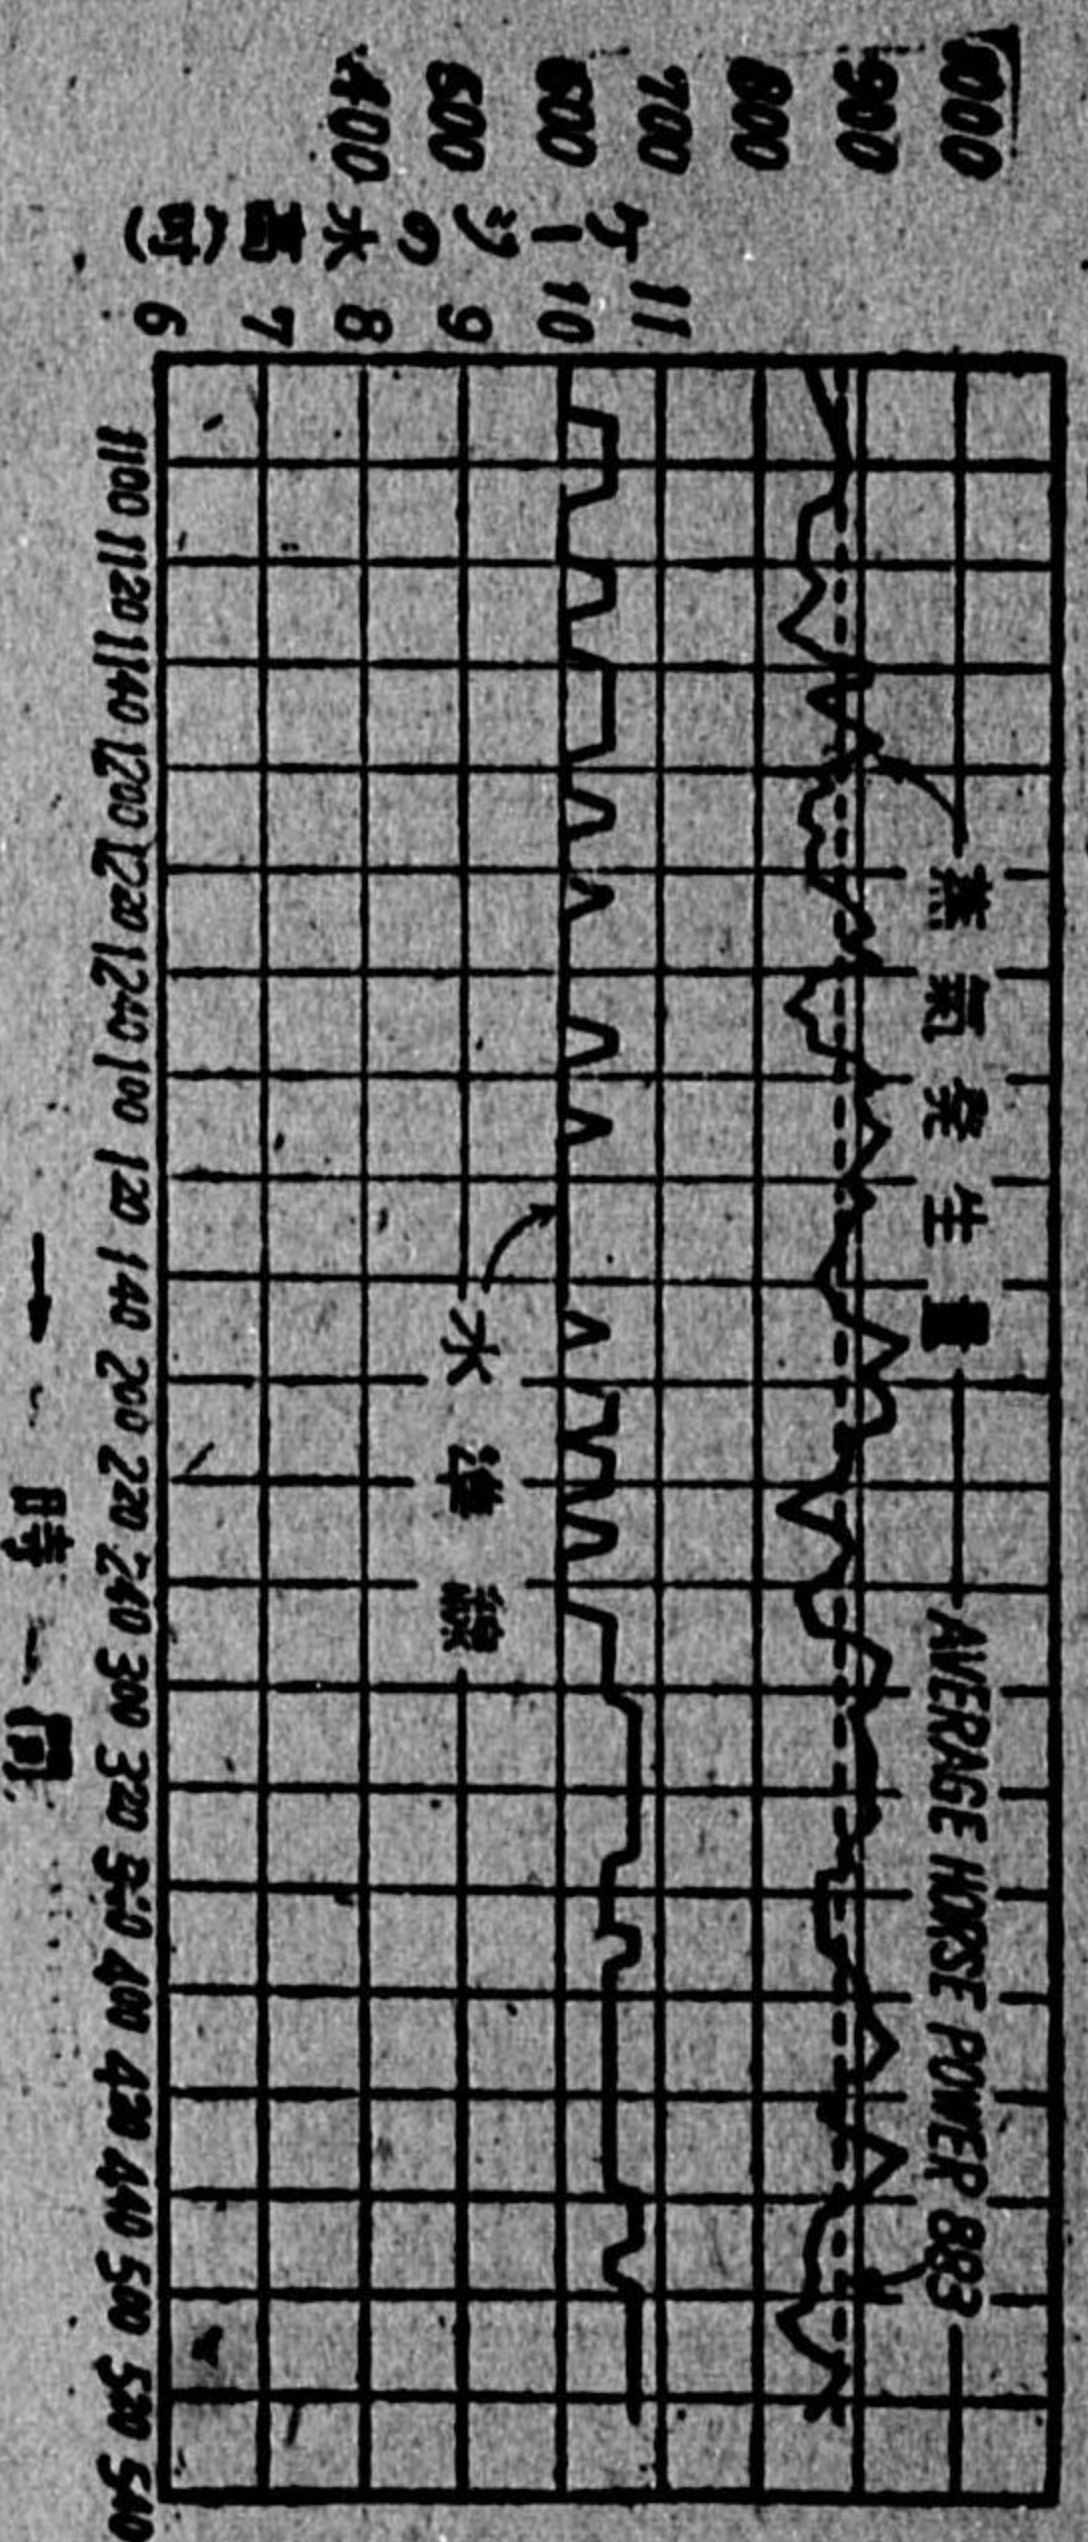 1000
900
800
700
600
500
400
ゲージの水高(吋)
11
10
9
8
7
6
蒸氣発生量
AVERAGE HORSE POWER 883
水準線
1100 1120 1140 1200 1220 1240 100 120 140 200 220 240 300 320 400 420 440 500 520 540
時間